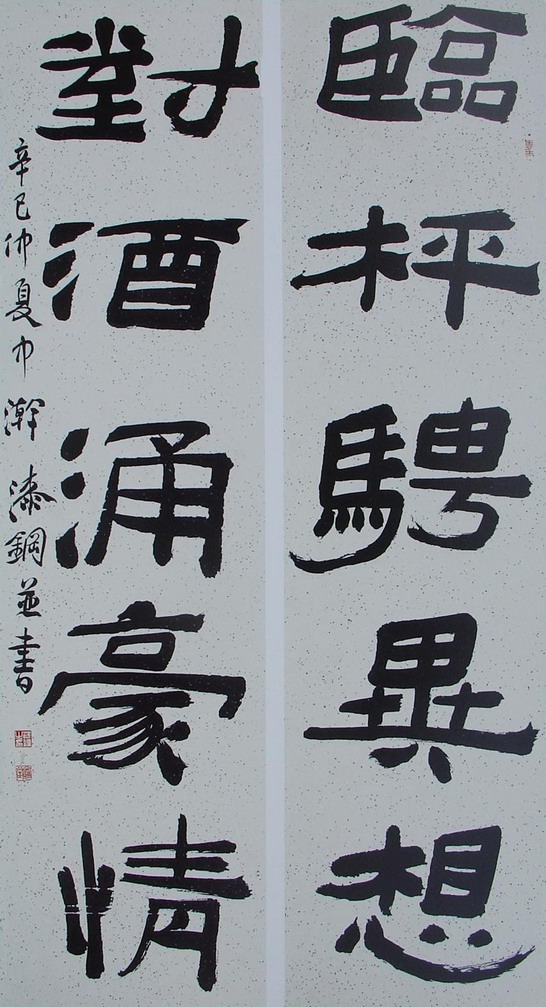 臨枰騁異想
對酒涌豪情
辛巳仲夏巾瀚漆鋼並書